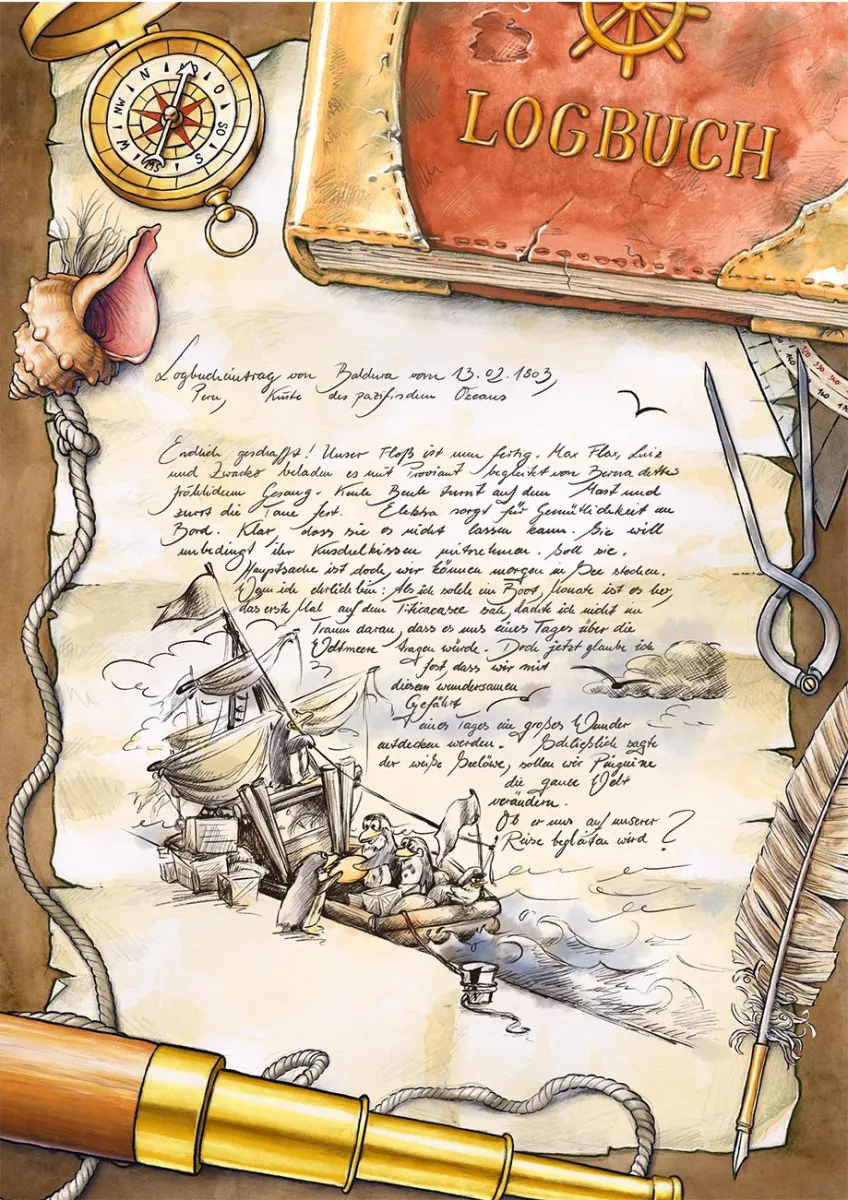 N
O
SO
S
W
NW
LOGBUCH
320 330 340
160
Logbucheintrag von Baldwa vom 13.02.1803,
Peru, Küste des pazifischen Ozeans
Endlich geschafft! Unser Floß ist nun fertig. Max Flax, Luiz
und Zwacko beladen es mit Proviant begleitet von Bernadettes
fröhlichem Gesang. Keule Beule turnt auf dem Mast und
zurrt die Taue fest. Elektra sorgt für Gemütlichkeit an
Bord. Klar, dass sie es nicht lassen kann. Sie will
unbedingt ihr Kuschelkissen mitnehmen. Soll sie.
Hauptsache ist doch, wir können morgen in See stechen.
Wenn ich ehrlich bin: Als ich solch ein Boot, Monate ist es her,
das erste Mal auf dem Titicacasee sah, dachte ich nicht im
Traum daran, dass es uns eines Tages über die
Weltmeere tragen würde. Doch jetzt glaube ich
fest, dass wir mit
diesem wundersamen
Gefährt
eines Tages ein großes Wunder
entdecken werden. Schließlich sagte
der weiße Seelöwe, sollen wir Pinguine
die ganze Welt
verändern.
Ob er uns auf unserer
Reise begleiten wird?